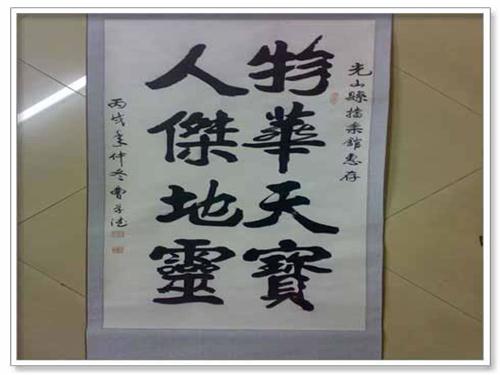 光山縣檔案館惠存
物華天寶
人傑地靈
丙戌年仲冬曹